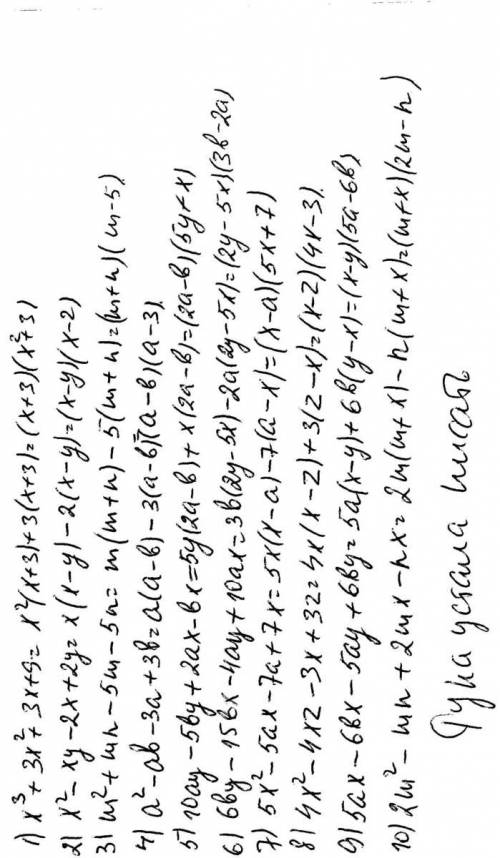 1) x³ + 3x² + 3x+9 = x²(x+3)+3(x+3)=(x+3)(x²+3)
2) x² - xy - 2x + 2y = x(x-y) - 2(x-y)=(x-y)(x-2)
3) m² + mn - 5m - 5n = m(m+n) - 5(m+n)=(m+n)(m-5)
4) a² - ab - 3a + 3b = a(a-b) - 3(a-b)=(a-b)(a-3)
5) 10ay - 5by + 2ax - bx = 5y(2a-b) + x(2a-b) = (2a-b)(5y+x)
6) 6by - 15bx - 4ay + 10ax = 3b(2y-5x) - 2a(2y-5x) = (2y-5x)(3b-2a)
7) 5x² - 5ax - 7a + 7x = 5x(x-a) - 7(a-x) = (x-a)(5x+7)
8) 4x² - 4xz - 3x + 3z = 4x(x-z) + 3(z-x) = (x-z)(4x-3)
9) 5ax - 6bx - 5ay + 6by = 5a(x-y) + 6b(y-x) = (x-y)(5a-6b)
10) 2m² - mn + 2mx - nx = 2m(m+x) - n(m+x) = (m+x)(2m-n)
рука устала писать